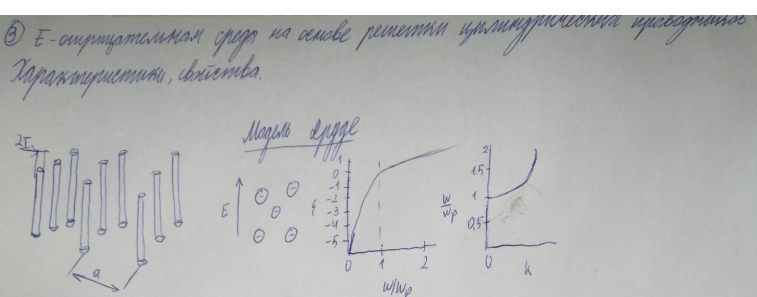 ③ Е-отрицательная среда на основе решетки цилиндрических проводников
Характеристики, свойства.
Модель Друде
2r
a
E
ε
1
0
-1
-2
-3
-4
-5
0 1 2
w/wp
w/wp
2
1.5
1
0,5
0
k